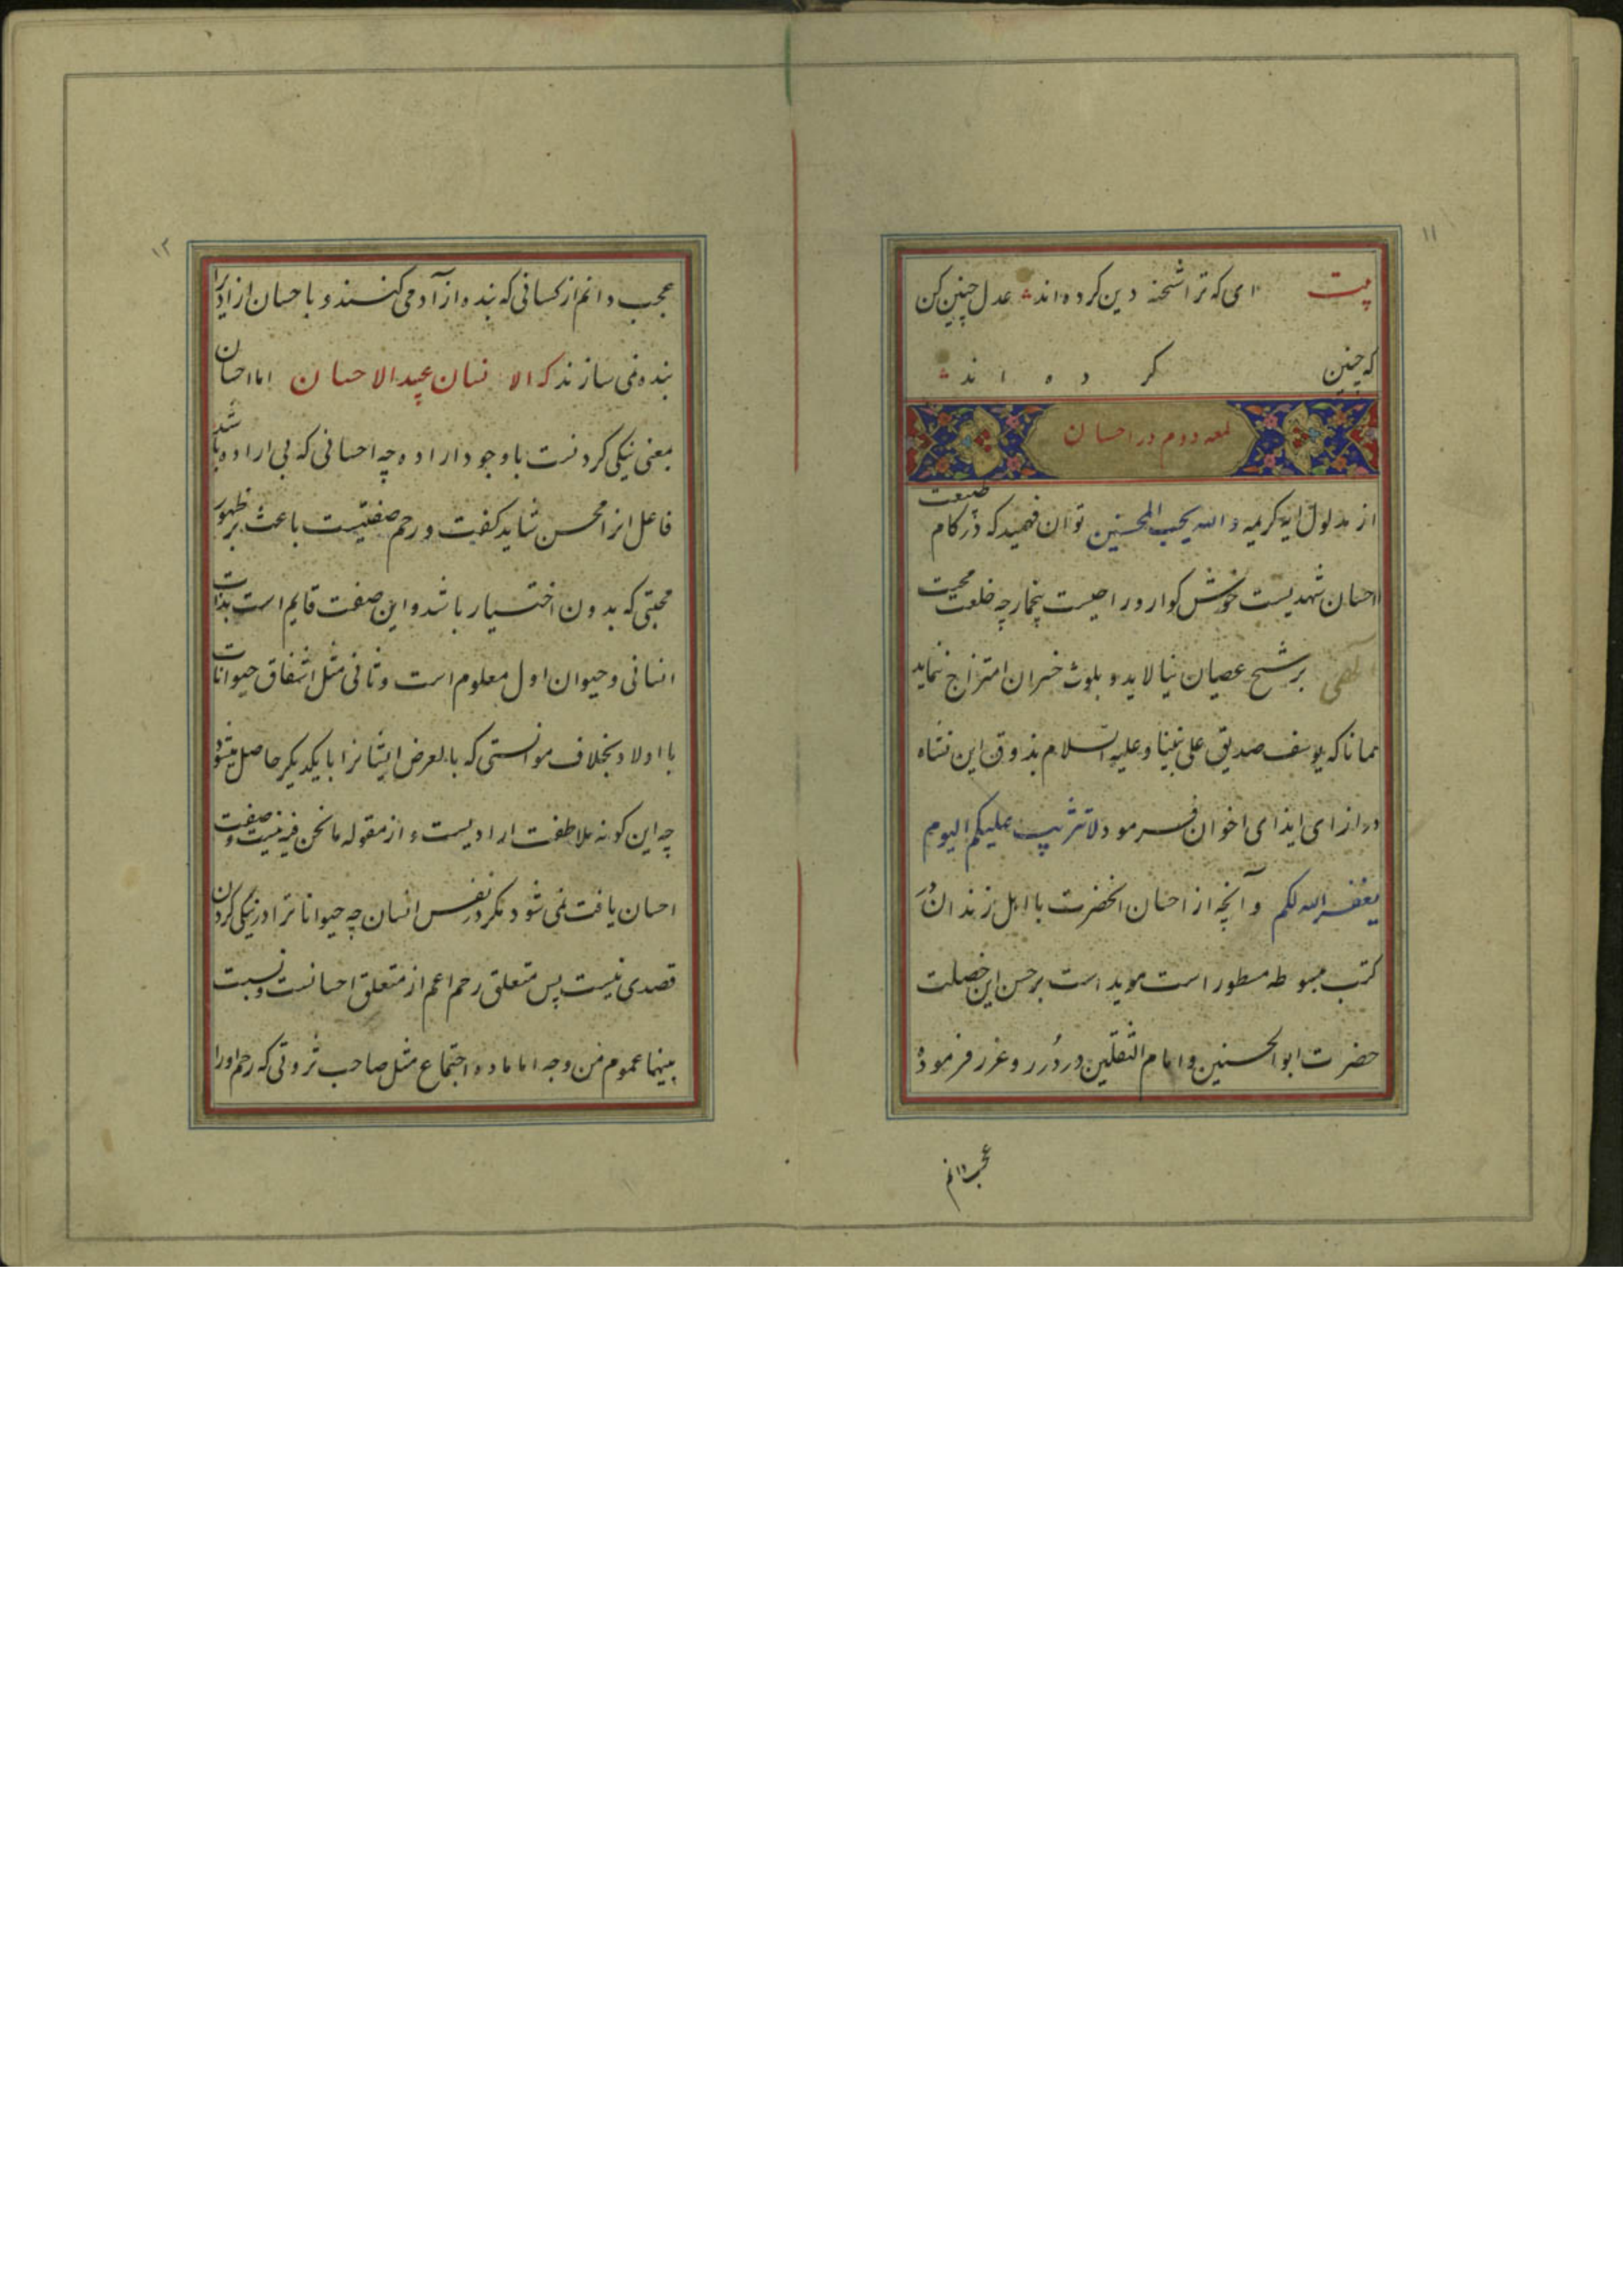 ۱۱
بیت ای که ترا شحنه دین کرده‌اند عدل چنین کن
که چنین کرده‌اند
لمعه دوم در احسان
از مدلول ایه کریمه و الله یحب المحسنین توان فهمید که در کام طبیعت
احسان شهدیست خوش کوار و راحیست بیخمار چه خلعت محبت
الهی برشح عصیان نیالاید و بلوث خسران امتزاج ننماید
همانا که یوسف صدیق علی نبینا و علیه السلام بذوق این نشاه
در ازای ایذای اخوان فرمود لا تثریب علیکم الیوم
یغفر الله لکم و آنچه از احسان انحضرت با اهل زندان در
کتب مبسوطه مسطور است موید است بر حسن این خصلت
حضرت ابوالحسنین و امام الثقلین در درر و غرر فرموده
عجب دانم
۱۲
عجب دانم از کسانی که بنده ازآد می کنند و باحسان ازاد را
بنده نمی سازند که الانسان عبید الاحسان اما احسان
بمعنی نیکی کردنست با وجود اراده چه احسانی که بی اراده باشد
فاعل انرا محسن نشاید کفت و رحم صفتیست باعث بر ظهور
محبتی که بدون اختیار باشد و این صفت قایم است بذات
انسانی و حیوان اول معلوم است و ثانی مثل اشفاق حیوانات
با اولاد بخلاف موانستی که بالعرض ایشانرا با یکدیکر حاصل میشود
چه این کونه ملاطفت ارادیست و از مقوله ما نحن فیه نیست و صفت
احسان یافت نمی شود مکر در نفس انسان چه حیوانات را در نیکی کردن
قصدی نیست پس متعلق رحم اعم از متعلق احسانست و نسبت
بینهما عموم من وجه اما ماده اجتماع مثل صاحب ثروتی که رحم اورا